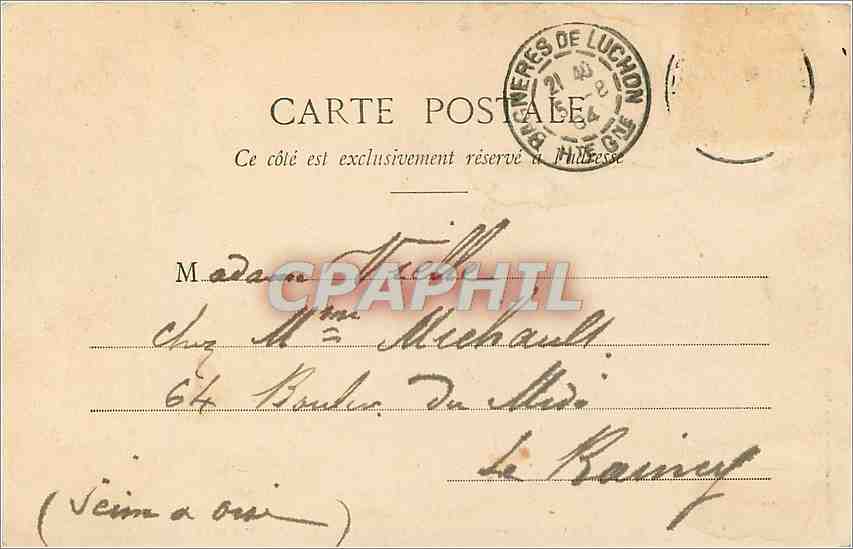 BAGNERES DE LUCHON
HTE GNE
CARTE POSTALE
Ce côté est exclusivement réservé à l'adresse
Madame Vielle
CPAPHIL
chez Mme Michault
64 Boulev. du Midi
Le Raincy
(Seine & Oise)